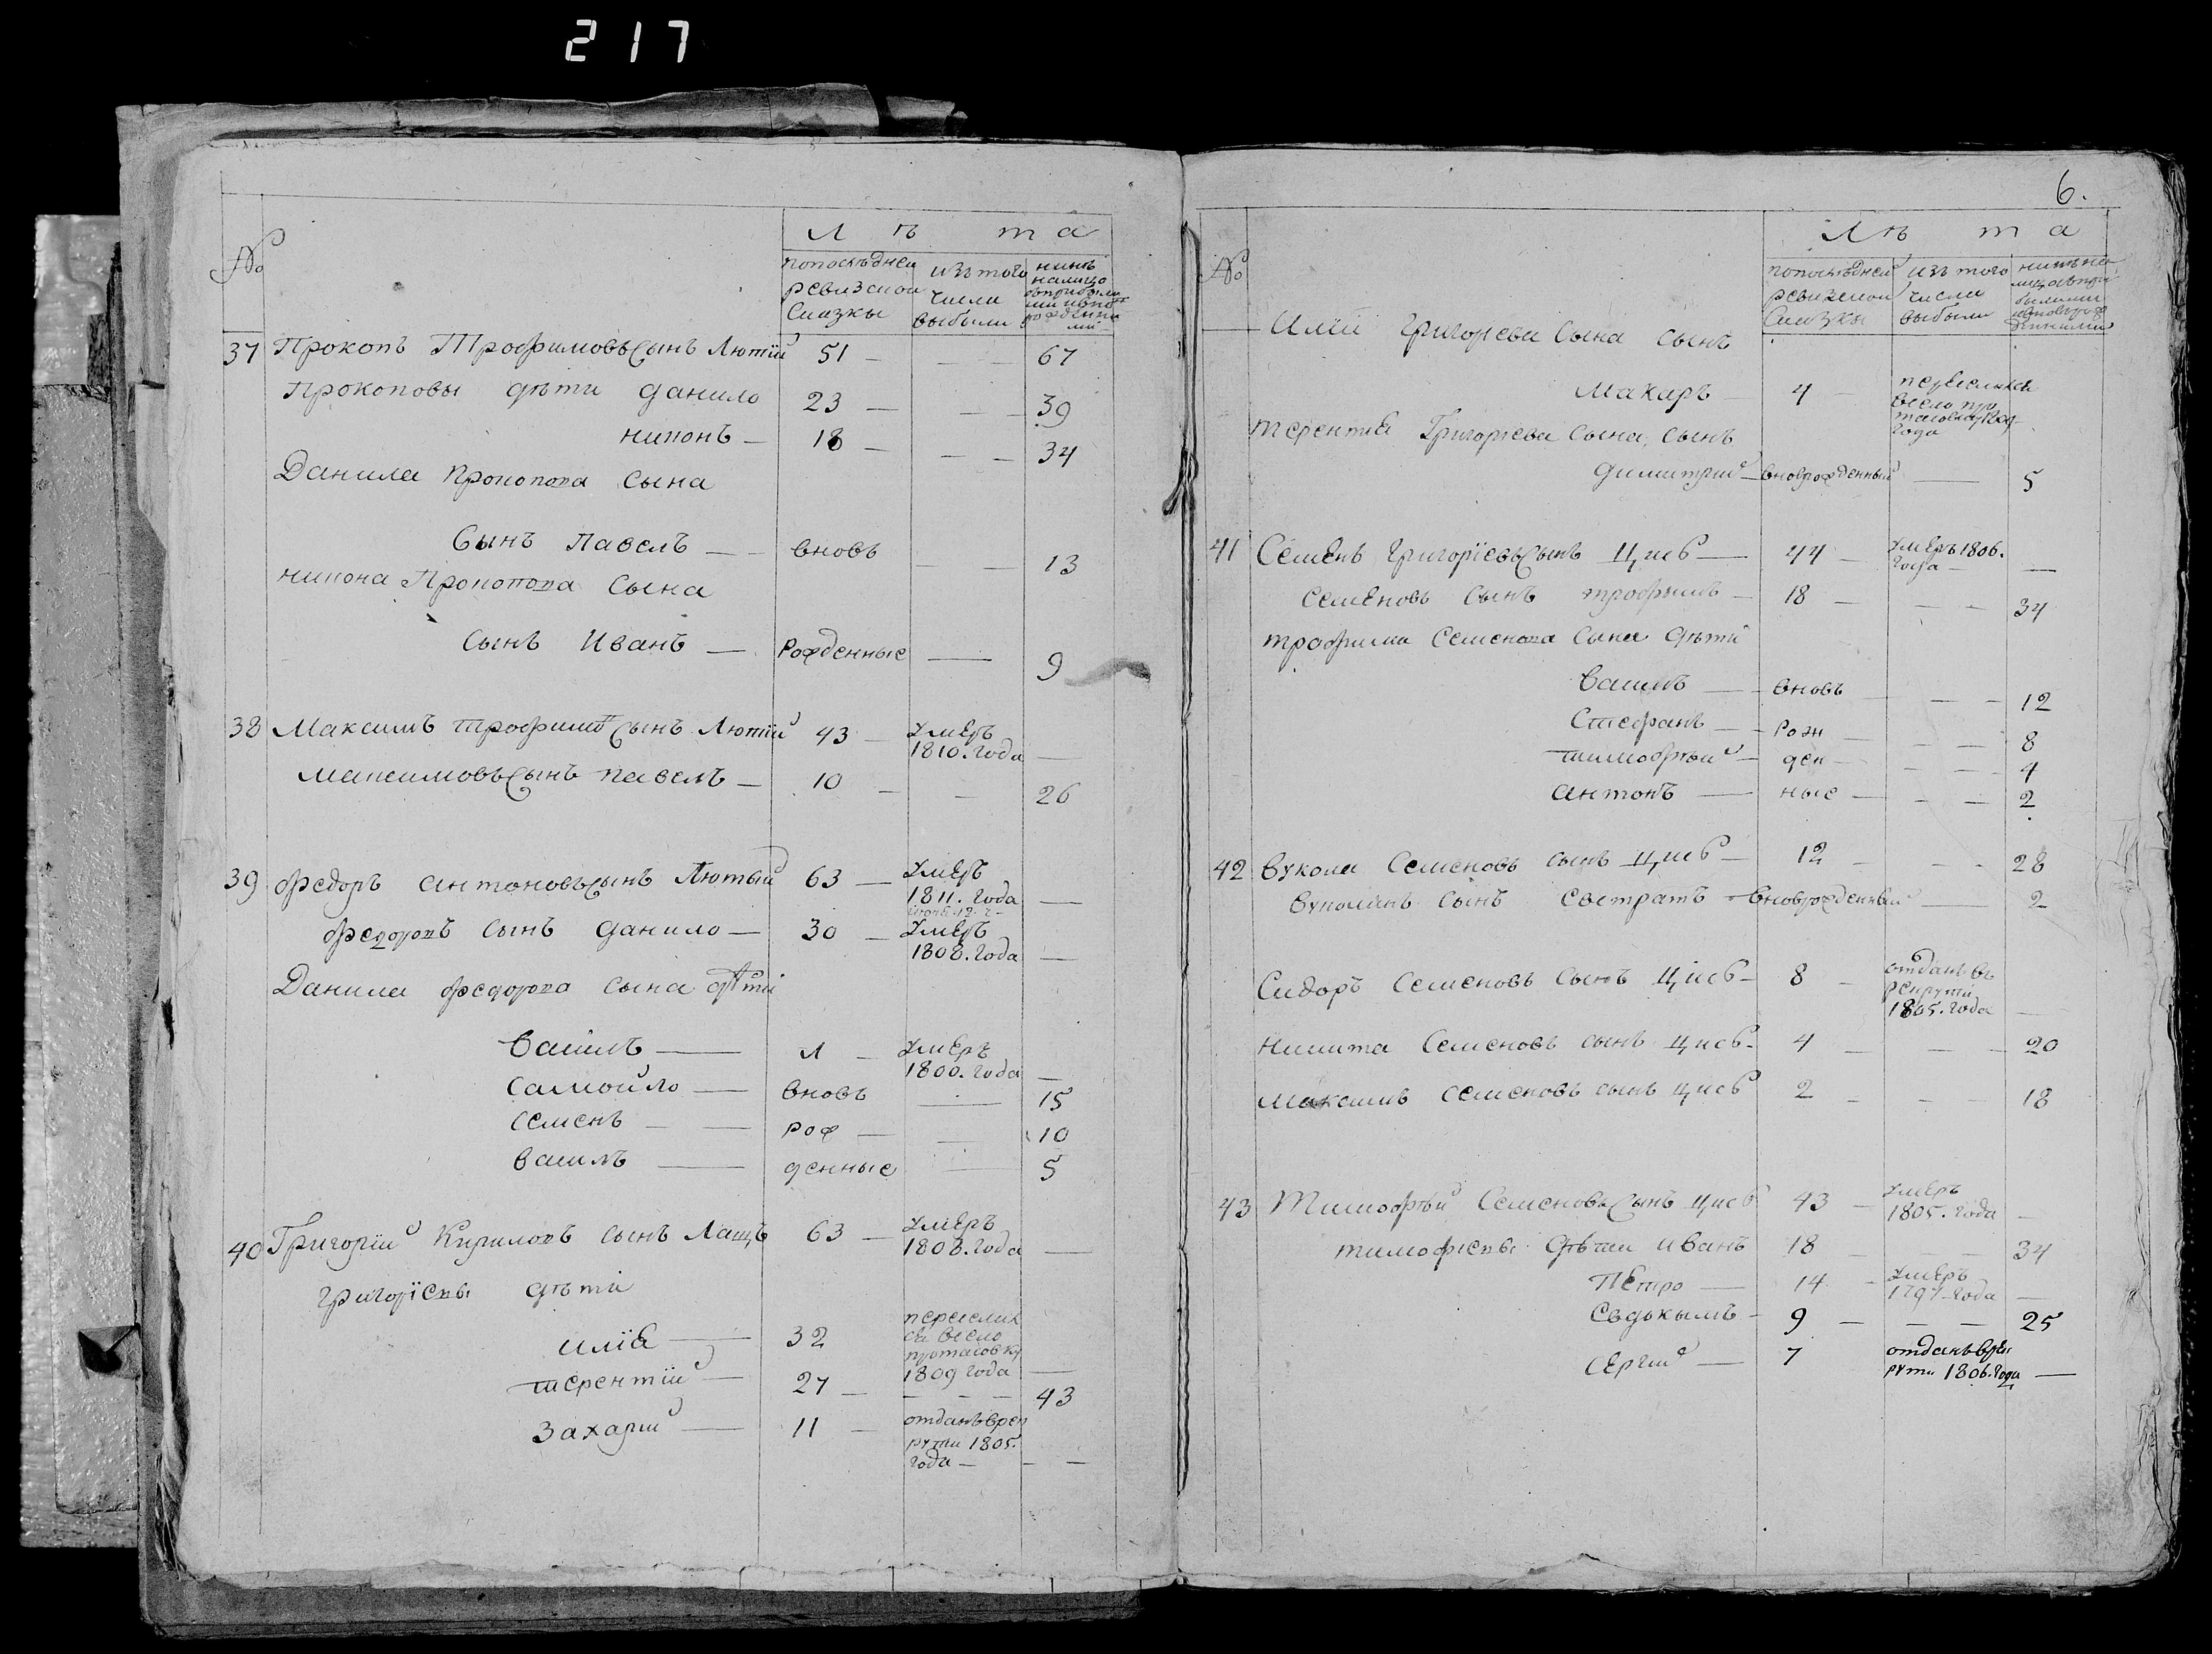 217
№
Лѣта
попослѣдней ревизской Сказки
изъ того числа выбыли
нинѣ налицо
37 Прокопъ Трофимовъ Сынъ Лютий 51 — — — 67
Прокоповы дѣти данило 23 — — — 39
никонъ — 18 — — — 34
Данила Прокопова Сына
Сынъ Павелъ — вновь — — 13
никона Прокопова Сына
Сынъ Иванъ — рожденные — 9
38 Максимъ трофимовъ Сынъ Лютий 43 — умеръ 1810. года —
максимовъ Сынъ павелъ — 10 — — 26
39 федоръ антоновъ сынъ Лютый 63 — умеръ 1811. года —
федоровъ сынъ данило — 30 — умеръ 1808. года —
Данила федорова сына дѣти
василъ — л — умеръ 1800. года —
самойло — вновь — 15
семенъ — рож — — 10
василъ — денные — 5
40 Григорий Кириловъ сынъ Лащъ 63 — умеръ 1808. года —
григориевы дѣти
илиа — 32 переселился в село протасовку 1809 года —
терентий — 27 — — — — 43
захарий — 11 — отданъ в рекруты 1805. года — — —
6.
№
Лѣта
попослѣдней ревизской Сказки
изъ того числа выбыли
Илии григориева Сына Сынъ
Макаръ — 4 — переселился в село
терентиа Григориева Сына, сынъ
димитрий — вноврожденный — 5
41 Семенъ григориевъ Сынъ Цисъ — 44 — умеръ 1806. года — —
семеновъ Сынъ трофимъ — 18 — — — 34
трофима Семенова Сына дѣти
василъ — вновь — — — 12
Стефанъ — рож — — — 8
тимофѣй — ден — — — 4
антонъ — ные — — — 2
42 вукола Семеновъ сынъ цисъ — 12 — — - 28
вуколинъ сынъ евстратъ — вноврожденный — 2
Сидоръ Семеновъ Сынъ Цисъ — 8 — отданъ въ рекруты 1805. года —
никита Семеновъ сынъ цисъ — 4 — — — 20
максимъ семеновъ сынъ цисъ 2 — — — 18
43 Тимофѣй Семеновъ Сынъ цисъ 43 — умеръ 1805. года —
тимофиевы дѣти иванъ 18 — — 34
петро — 14 — умеръ 1797 года —
евдокымъ — 9 — — — 25
сергий — 7 отданъ в рекруты 1806. года —